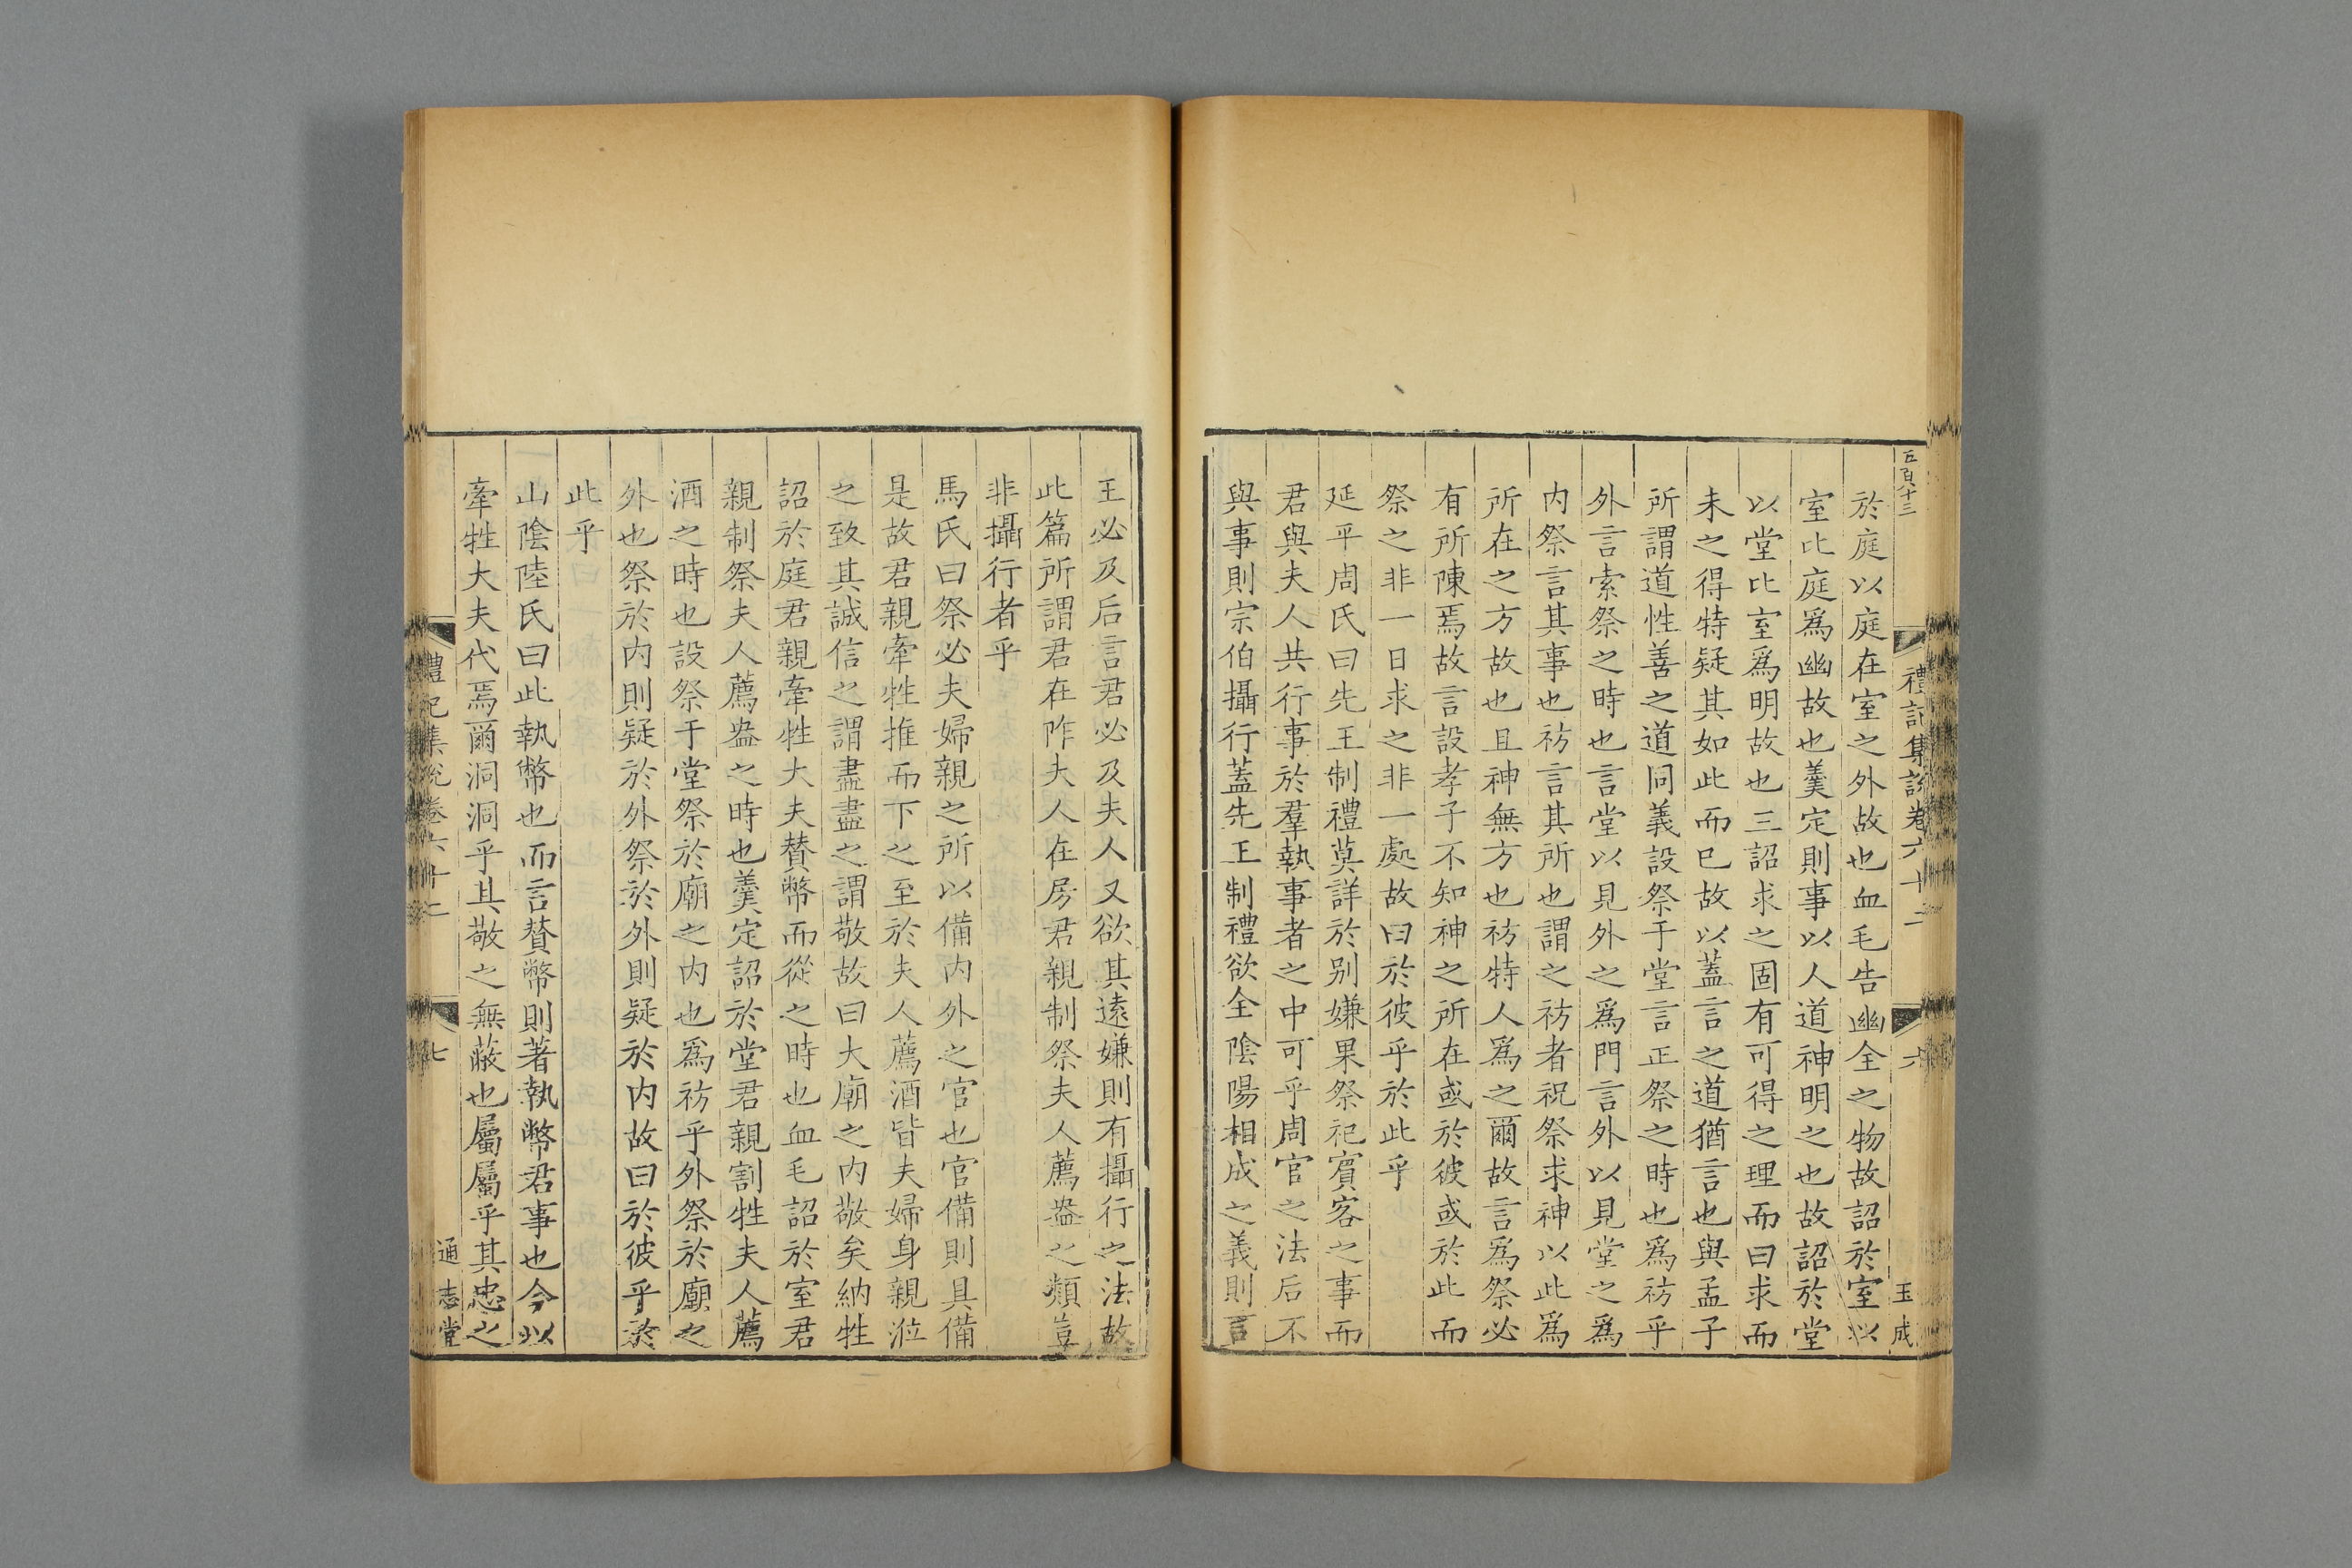 五百十三
禮記集說卷六十二
六
玉成
於庭以庭在室之外故也血毛告幽全之物故詔於室以
室比庭爲幽故也羹定則事以人道神明之也故詔於堂
以堂比室爲明故也三詔求之固有可得之理而曰求而
未之得特疑其如此而已故以蓋言之道猶言也與孟子
所謂道性善之道同義設祭于堂言正祭之時也爲祊乎
外言索祭之時也言堂以見外之爲門言外以見堂之爲
内祭言其事也祊言其所也謂之祊者祝祭求神以此爲
所在之方故也且神無方也祊特人爲之爾故言爲祭必
有所陳焉故言設孝子不知神之所在或於彼或於此而
祭之非一日求之非一處故曰於彼乎於此乎
延平周氏曰先王制禮莫詳於别嫌果祭祀賓客之事而
君與夫人共行事於羣執事者之中可乎周官之法后不
與事則宗伯攝行蓋先王制禮欲全陰陽相成之義則言
王必及后言君必及夫人又欲其遠嫌則有攝行之法故
此篇所謂君在阼夫人在房君親制祭夫人薦盎之類豈
非攝行者乎
馬氏曰祭必夫婦親之所以備内外之官也官備則具備
是故君親牽牲推而下之至於夫人薦酒皆夫婦身親涖
之致其誠信之謂盡盡之謂敬故曰大廟之内敬矣納牲
詔於庭君親牽牲大夫贊幣而從之時也血毛詔於室君
親制祭夫人薦盎之時也羹定詔於堂君親割牲夫人薦
酒之時也設祭于堂祭於廟之内也爲祊乎外祭於廟之
外也祭於内則疑於外祭於外則疑於内故曰於彼乎於
此乎
山陰陸氏曰此執幣也而言贊幣則著執幣君事也今以
牽牲大夫代焉爾洞洞乎其敬之無蔽也屬屬乎其忠之
禮記集說卷六十二
七
通志堂